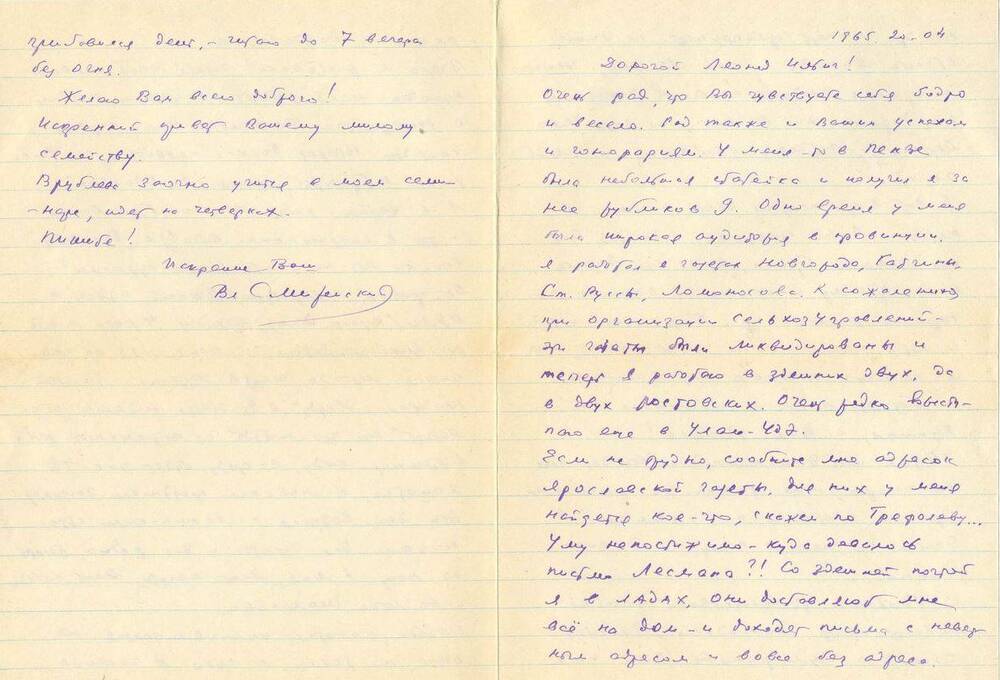 1965.20.04
Дорогой Леонид Ильич!
Очень рад, что Вы чувствуете себя бодро
и весело. Рад также и Вашим успехам
и гонорариям. У меня-то в Пензе
была небольшая статейка и получил я за
нее рубликов 9. Одно время у меня
была широкая аудитория в провинции.
Я работал в газетах Новгорода, Гатчины,
Ст. Руссы, Ломоносова. К сожалению
при организации сельхозуправлений -
эти газеты были ликвидированы и
теперь я работаю в здешних двух, да
в двух ростовских. Очень редко высту-
паю еще в Улан-Удэ.
Если не трудно, сообщите мне адресок
ярославской газеты. Для них у меня
найдется кое-что, скажем по Трефолеву...
Уму непостижимо - куда девалось
письмо Лесмана?!! Со здешней почтой
я в ладах, они доставляют мне
всё на дом - и доходят письма с невер-
ным адресом и вовсе без адреса.
день, - читаю до 7 вечера
без огня.
Желаю Вам всего доброго!
Искренний привет Вашему милому
семейству.
Врублевская заочно учится в моем семи-
-наре, идет на четверках.
Пишите!
Искренне Ваш
Вл Смиренский